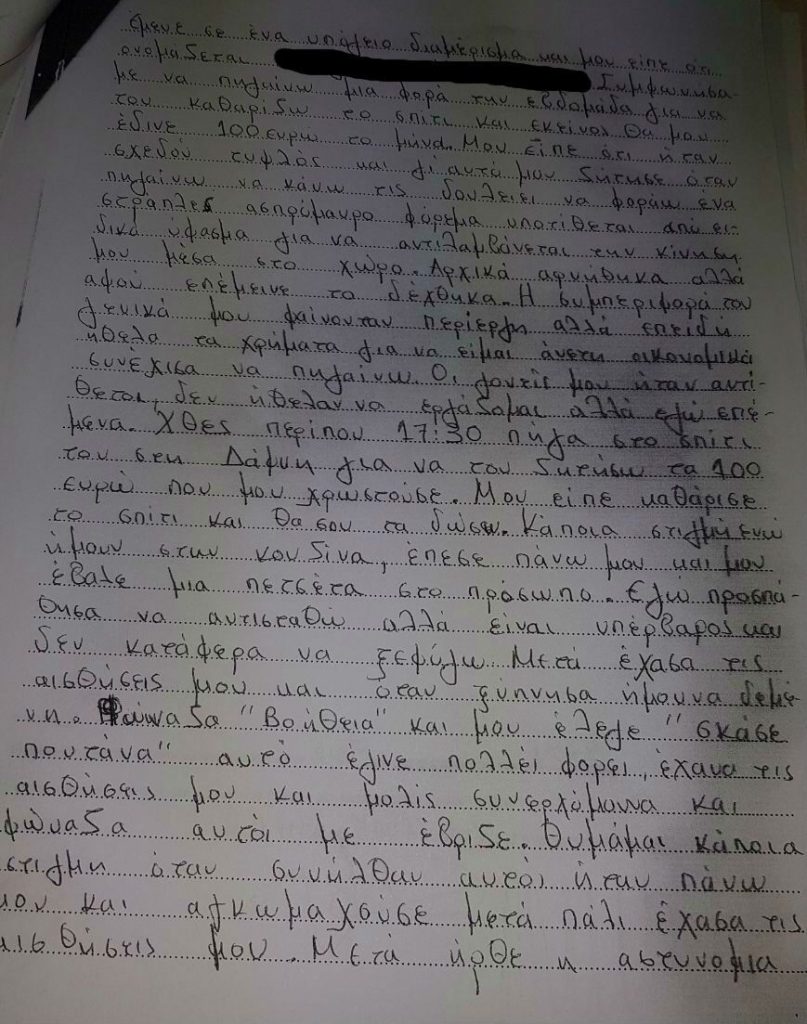 έμενε σε ένα υπόγειο διαμέρισμα και μου είπε ότι
ονομάζεται Συμφωνήσα-
με να πηγαίνω μια φορά την εβδομάδα για να
του καθαρίζω το σπίτι και εκείνος θα μου
έδινε 100 ευρω το μήνα. Μου είπε ότι ήταν
σχεδόν τυφλός και γι αυτό μου ζήτησε όταν
πηγαίνω να κάνω τις δουλειες να φοράω ένα
στράπλες ασπρόμαυρο φόρεμα υποτίθεται από ει-
δικό ύφασμα για να αντιλαμβάνεται την κίνηση
μου μέσα στο χώρο. Αρχικά αρνήθηκα αλλά
αφού επέμεινε το δέχθηκα. Η συμπεριφορά του
γενικά μου φαίνονταν περίεργη αλλά επειδή
ήθελα τα χρήματα για να είμαι άνετη οικονομικά
συνέχισα να πηγαίνω. Οι γονείς μου ήταν αντί-
θετοι, δεν ήθελαν να εργάζομαι αλλά εγώ επέ-
μενα. Χθες περίπου 17:30 πήγα στο σπίτι
του στη Δάφνη για να του ζητήσω τα 100
ευρώ που μου χρωστούσε. Μου είπε καθάρισε
το σπίτι και θα σου τα δώσω. Κάποια στιγμή ενώ
ήμουν στην κουζίνα, έπεσε πάνω μου και μου
έβαλε μια πετσέτα στο πρόσωπο. Εγώ προσπά-
θησα να αντισταθώ αλλά είναι υπέρβαρος και
δεν κατάφερα να ξεφύγω. Μετά έχασα τις
αισθήσεις μου και όταν ξύπνησα ήμουνα δεμέ-
νη. Φώναζα "Βοήθεια" και μου έλεγε "σκάσε
πουτάνα" αυτό έγινε πολλές φορες, έχανα τις
αισθήσεις μου και μόλις συνερχόμουνα και
φώναζα αυτός με έβριζε. Θυμάμαι κάποια
στιγμη όταν συνήλθαν αυτός ήταν πάνω
μου και αγκωμαχούσε μετά πάλι έχασα τις
αισθήσεις μου. Μετά ήρθε η αστυνομια